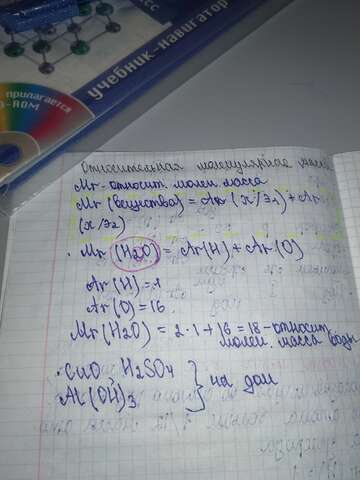 класс
учебник-навигатор
прилагается
CD-ROM
Относительная молекулярная масса
Mr - относит. молек. масса
Mr (вещества) = Ar (х/э1) + Ar
(х/э2)
• Mr (H2O) = Ar(H) + Ar(O)
Ar (H) = 1
Ar (O) = 16
Mr (H2O) = 2·1 + 16 = 18 - относит
молек. масса воды
• CuO, H2SO4
Al(OH)3
} на дом